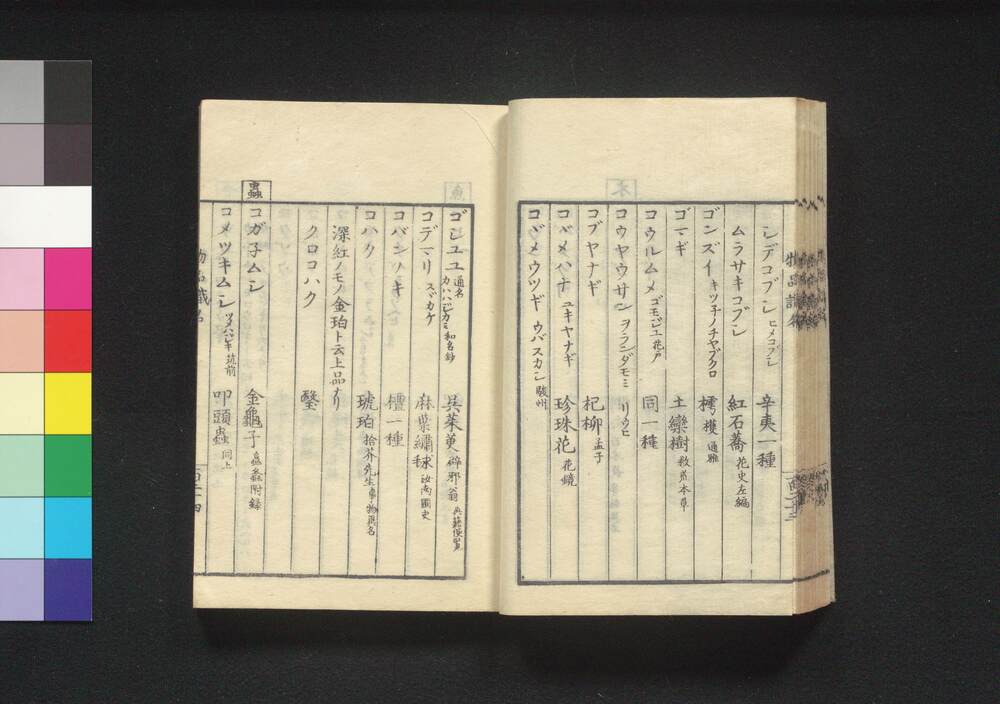 シデコブシ ヒメコブシ 辛夷一種
ムラサキコブシ 紅石蕎 花史左編
ゴンズイ キツ子ノチヤブクロ 樗 通雅
ゴマギ 土欒樹 救荒本草
コウルムメ ゴモジユ 花戸 同一種
コウヤウサン ヲランダモミ リウヒ
コブヤナギ 杞柳 孟子
コゴメハナ ユキヤナギ 珍珠花 花鏡
コゴメウツギ ウバスカシ 駿州
物品識名
ゴシユユ 通名 カハハジカミ 和名鈔 呉茱萸 辟邪翁
コデマリ スズカケ 麻葉繍毬 汝南圃史
コバンノキ 橝一種
コハク 琥珀 拾芥 先生事物異名
深紅ノモノ金珀ト云上品ナリ
クロコハク 瑿
蟲
コガ子ムシ 金龜子 盬蠡附録
コメツキムシ ツメハジキ 筑前 叩頭蟲 同上
物品識名